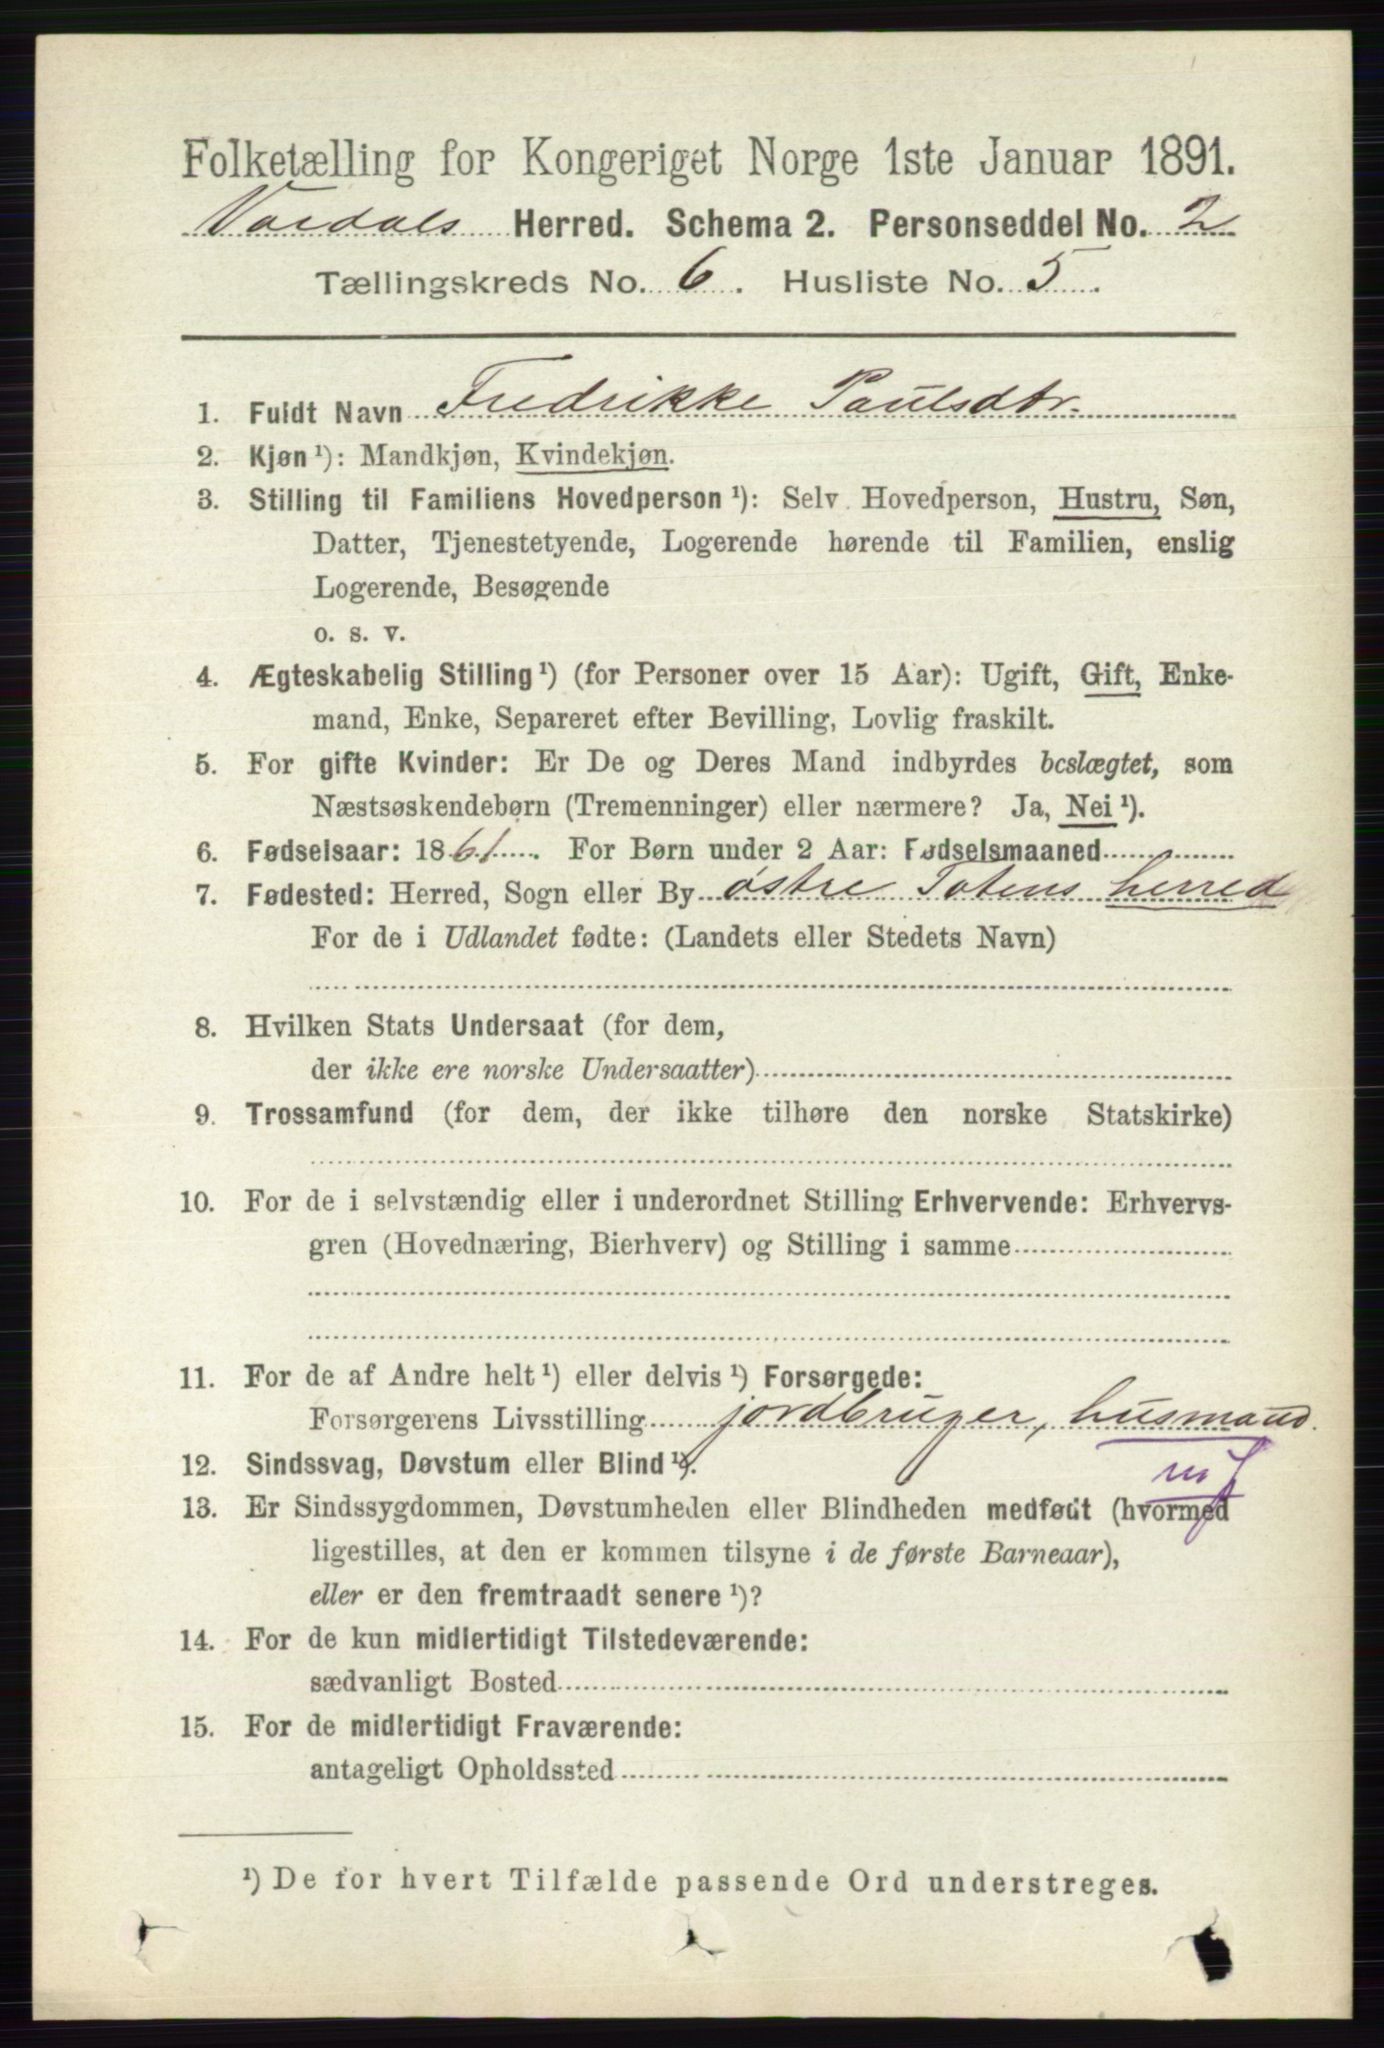 Folketælling for Kongeriget Norge 1ste Januar 1891.
Vardals Herred. Schema 2. Personseddel No. 2
Tællingskreds No. 6. Husliste No. 5.
1. Fuldt Navn Fredrikke Paulsdtr.
2. Kjøn ¹): Mandkjøn, Kvindekjøn.
3. Stilling til Familiens Hovedperson ¹): Selv Hovedperson, Hustru, Søn,
Datter, Tjenestetyende, Logerende hørende til Familien, enslig
Logerende, Besøgende
o. s. v.
4. Ægteskabelig Stilling ¹) (for Personer over 15 Aar): Ugift, Gift, Enke-
mand, Enke, Separeret efter Bevilling, Lovlig fraskilt.
5. For gifte Kvinder: Er De og Deres Mand indbyrdes beslægtet, som
Næstsøskendebørn (Tremenninger) eller nærmere? Ja, Nei ¹).
6. Fødselsaar: 1861. For Børn under 2 Aar: Fødselsmaaned
7. Fødested: Herred, Sogn eller By østre Totens herred
For de i Udlandet fødte: (Landets eller Stedets Navn)
8. Hvilken Stats Undersaat (for dem,
der ikke ere norske Undersaatter)
9. Trossamfund (for dem, der ikke tilhøre den norske Statskirke)
10. For de i selvstændig eller i underordnet Stilling Erhvervende: Erhvervs-
gren (Hovednæring, Bierhverv) og Stilling i samme
11. For de af Andre helt ¹) eller delvis ¹) Forsørgede:
Forsørgerens Livsstilling jordbruger, husmand.
12. Sindssvag, Døvstum eller Blind ¹).
mj
13. Er Sindssygdommen, Døvstumheden eller Blindheden medfødt (hvormed
ligestilles, at den er kommen tilsyne i de første Barneaar),
eller er den fremtraadt senere ¹)?
14. For de kun midlertidigt Tilstedeværende:
sædvanligt Bosted
15. For de midlertidigt Fraværende:
antageligt Opholdssted
¹) De for hvert Tilfælde passende Ord understreges.